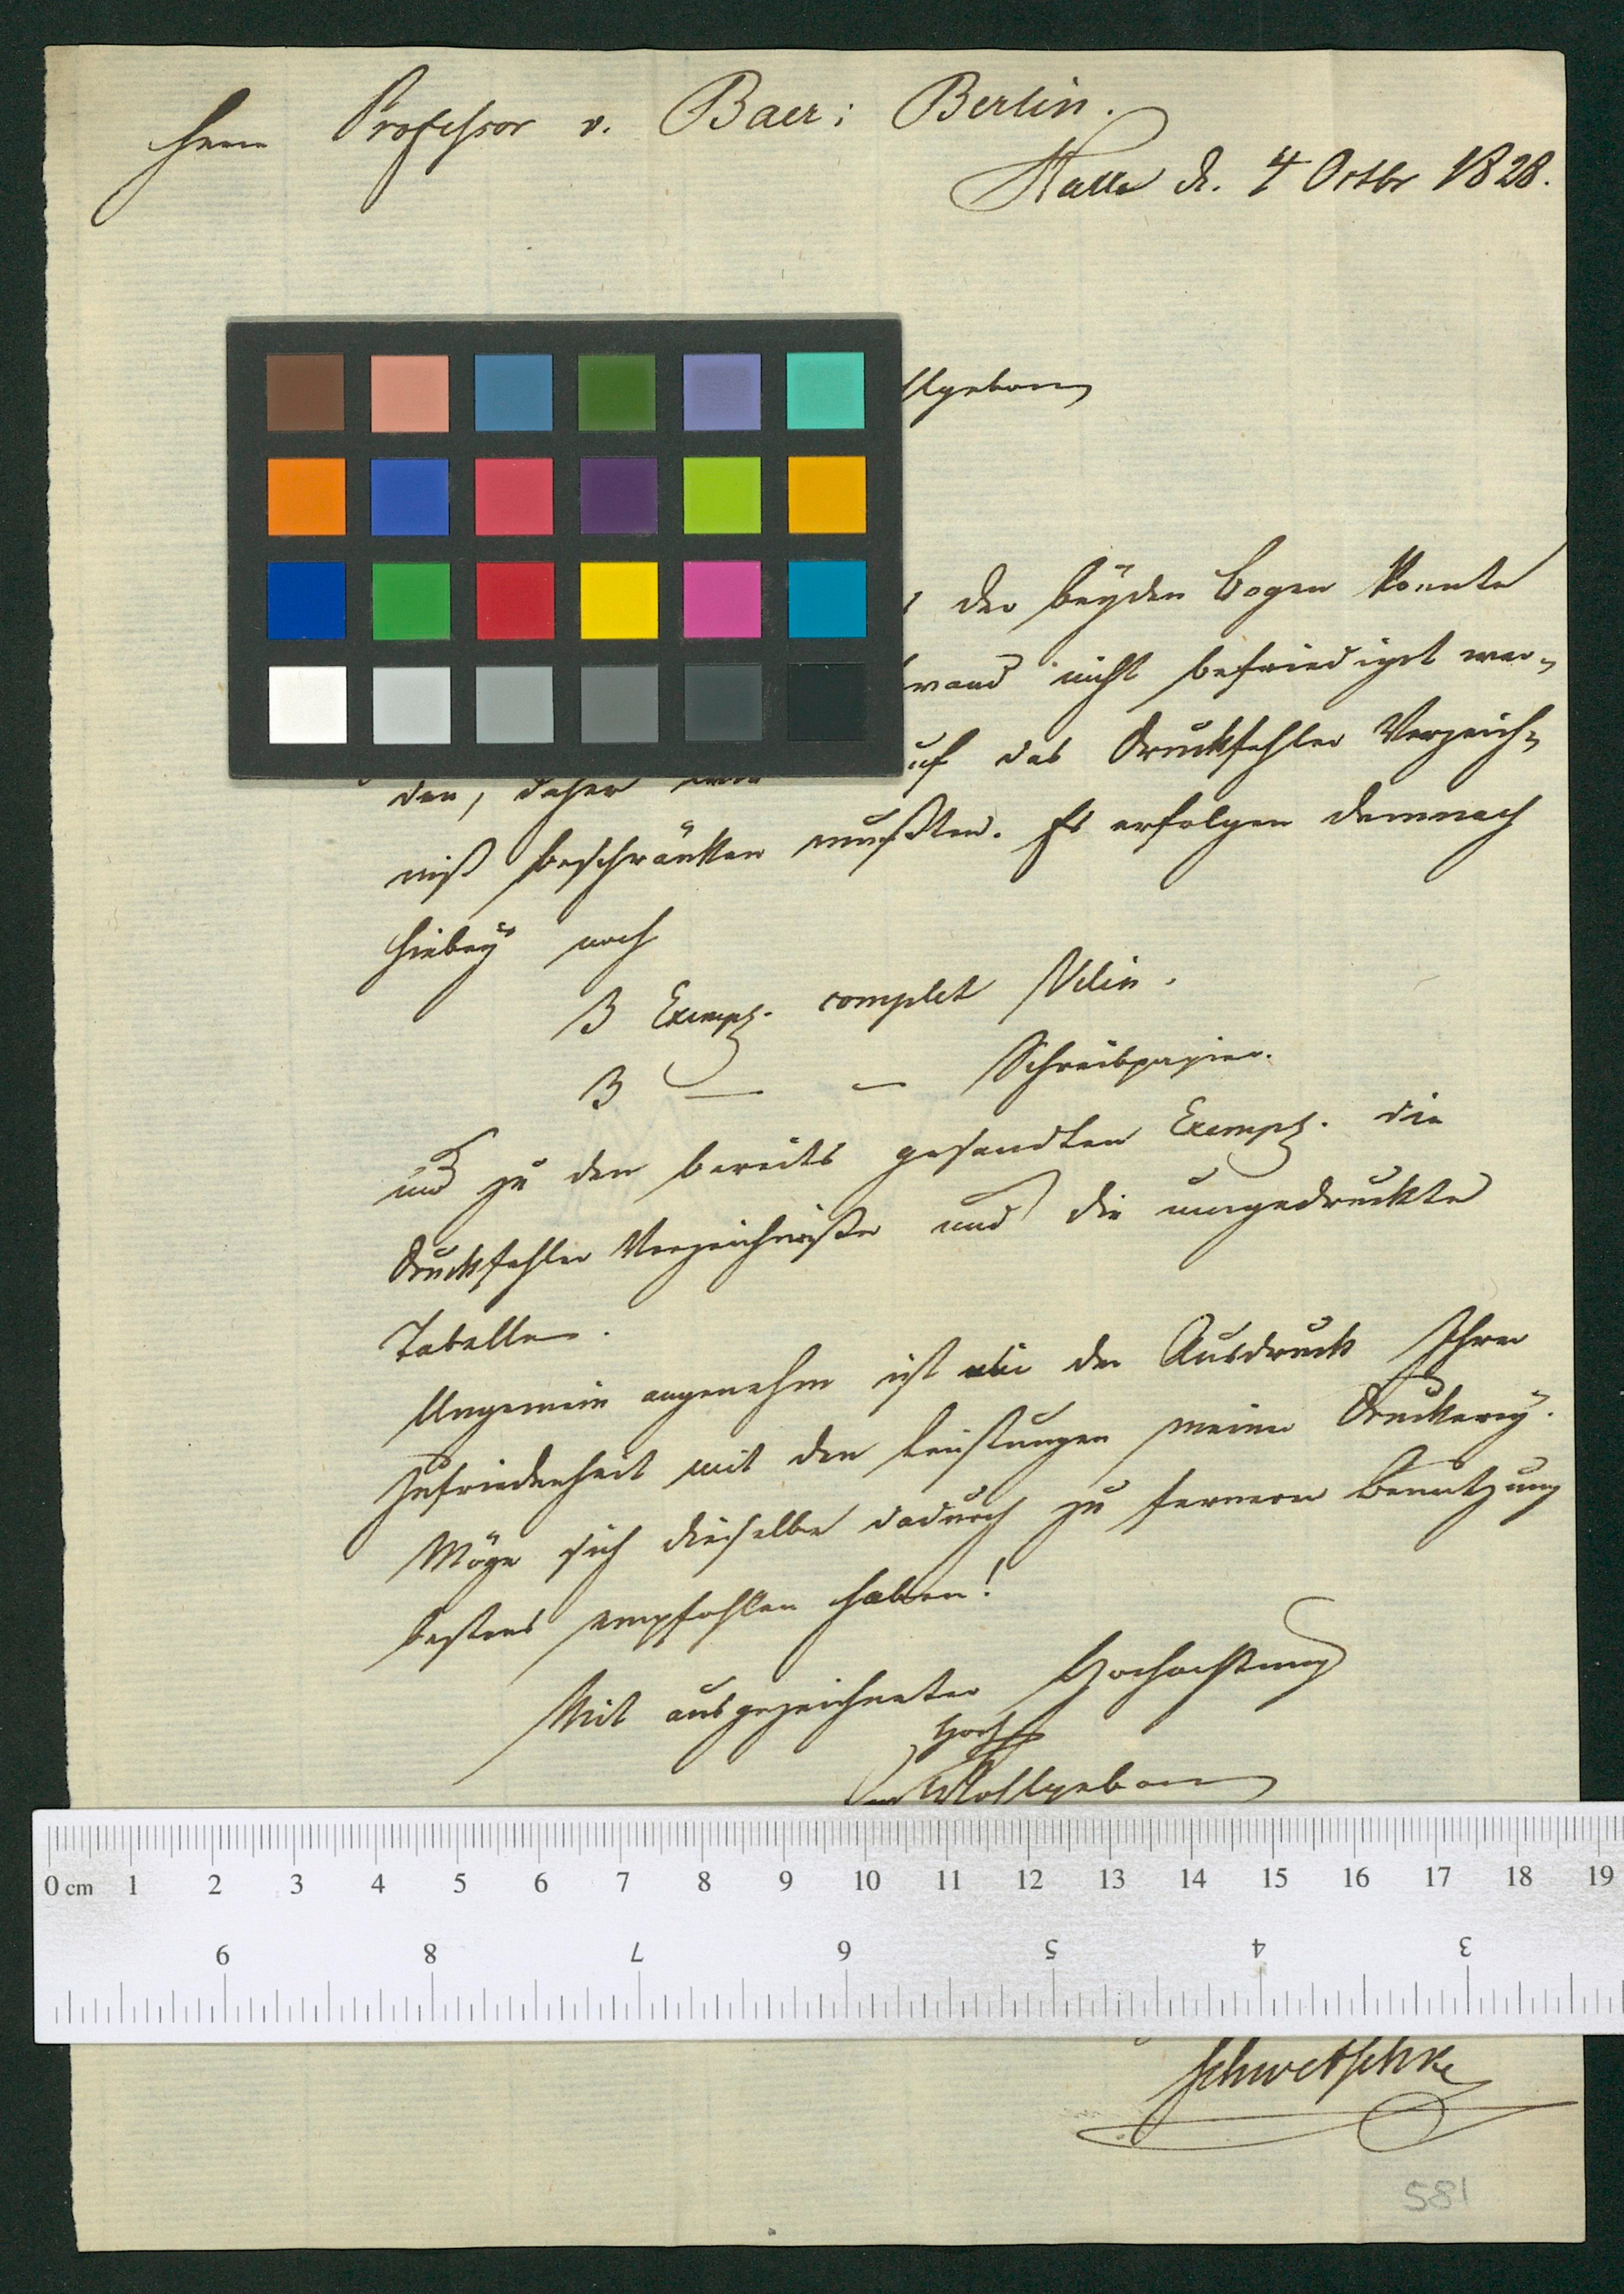 Herrn Professor v. Baer; Berlin.
Halle d. 4 Octbr 1828.
der beyden Bogen konnte
nicht befriedigt wer-
den, daher auf das Druckfehler Verzeich-
niß beschränken mußten. Es erfolgen demnach
hiebey noch
3 Exempl. complet Velin.
3 — — Schreibpapier.
und zu den bereits gesandten Exempl. die
Druckfehler Verzeichniße und die umgedruckte
Tabelle.
Ungemein angenehm ist der Ausdruck Ihrer
Zufriedenheit mit den Leistungen meiner Druckerey.
Möge sich dieselbe dadurch zu fernerer Benutzung
bestens empfohlen haben!
Mit ausgezeichneter Hochachtung
Hoch
Wohlgeboren
0 cm 1 2 3 4 5 6 7 8 9 10 11 12 13 14 15 16 17 18 19
9 8 7 6 5 4 3
Schwetschke
581